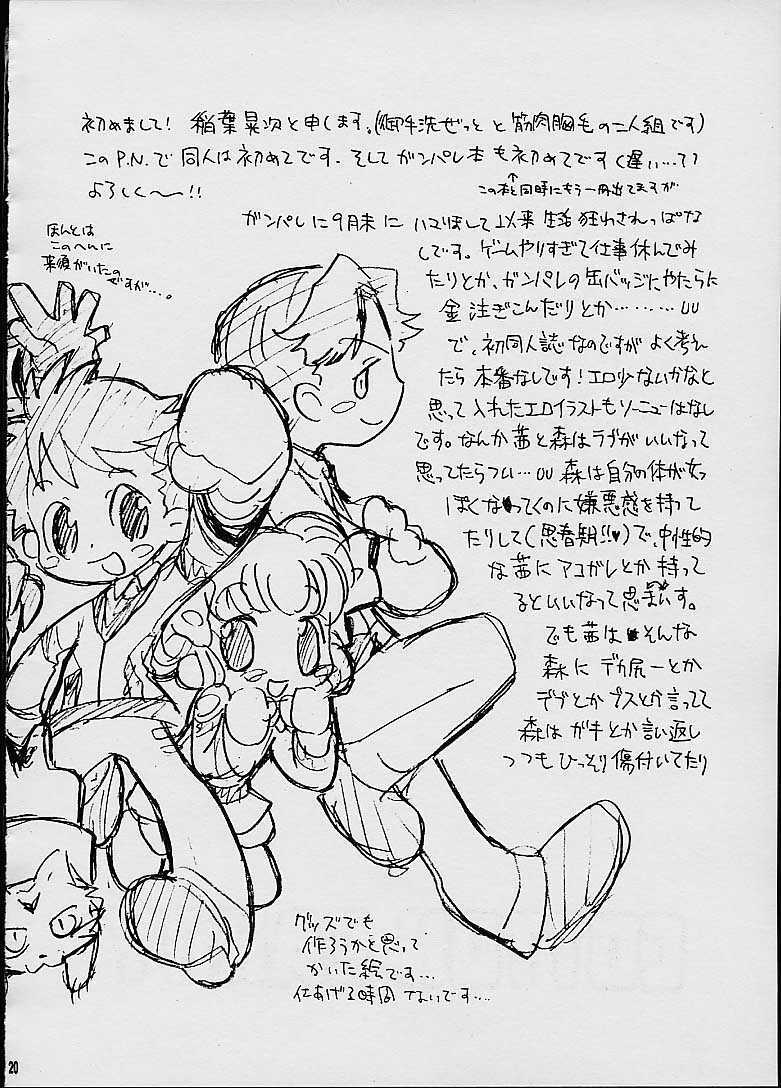 初めまして! 稲葉晃次と申します。(御手洗ぜっと と 筋肉胸毛の二人組です)
このP.N.で同人は初めてです。そしてガンパレ本も初めてです(遅い…て)
よろしく〜〜!!
↑
この本と同時にもう一冊出てますが
ガンパレに9月末に ハマりまして以来 生活狂わされっぱな
しです。ゲームやりすぎて仕事休んでみ
たりとか、ガンパレの缶バッジにやたらに
金注ぎこんだりとか………UU
で、初同人誌なのですが よく考え
たら本番なしです!エロ少ないかなと
思って入れたエロイラストもソーニューはなし
です。なんか茜と森はラブがいいなって
思ってたらつい…UU 森は自分の体が女っ
ぽくなってくのに嫌悪感を持って
たりして(思春期!!♥)で、中性的
な茜にアコガレとか持って
るといいなって思います。
でも茜はそんな
森にデカ尻ーとか
デブとかブスとか言ってて
森はガキとか言い返し
つつもひっそり傷付いてたり
ほんとは
このへんに
来須がいたの
ですが…。
グッズでも
作ろうかと思って
かいた絵です…
仕あげる時間 ないです…
20